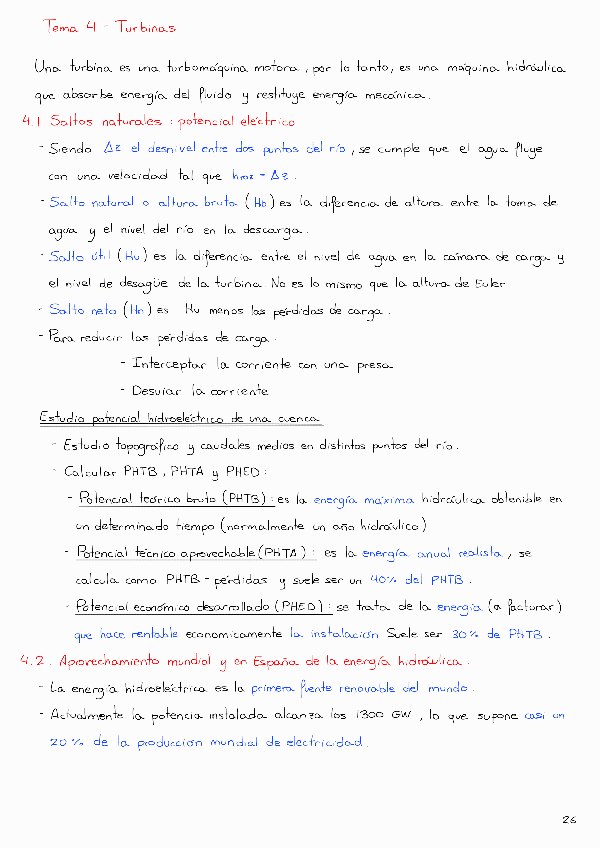 Tema 4 - Turbinas
Una turbina es una turbomáquina motora, por lo tanto, es una máquina hidráulica
que absorbe energía del fluido y restituye energía mecánica.
4.1 Saltos naturales: potencial eléctrico
- Siendo Δz el desnivel entre dos puntos del río, se cumple que el agua fluye
con una velocidad tal que hroz = Δz.
- Salto natural o altura bruta (Hb) es la diferencia de altura entre la toma de
agua y el nivel del río en la descarga.
- Salto útil (Hu) es la diferencia entre el nivel de agua en la cámara de carga y
el nivel de desagüe de la turbina. No es lo mismo que la altura de Euler
- Salto neto (Hn) es Hu menos las pérdidas de carga.
- Para reducir las pérdidas de carga.
- Interceptar la corriente con una presa
- Desviar la corriente
Estudio potencial hidroeléctrico de una cuenca
- Estudio topográfico y caudales medios en distintos puntos del río.
- Calcular PHTB, PHTA y PHED:
- Potencial teórico bruto (PHTB): es la energía máxima hidráulica obtenible en
un determinado tiempo (normalmente un año hidráulico)
- Potencial técnico aprovechable (PHTA): es la energía anual realista, se
calcula como PHTB - pérdidas y suele ser un 40% del PHTB.
- Potencial económico desarrollado (PHED): se trata de la energía (a facturar)
que hace rentable economicamente la instalación Suele ser 30% de PHTB.
4.2. Aprovechamiento mundial y en España de la energía hidráulica.
- La energía hidroeléctrica es la primera fuente renovable del mundo.
- Actualmente la potencia instalada alcanza los 1300 GW, lo que supone casi un
20% de la producción mundial de electricidad.
26